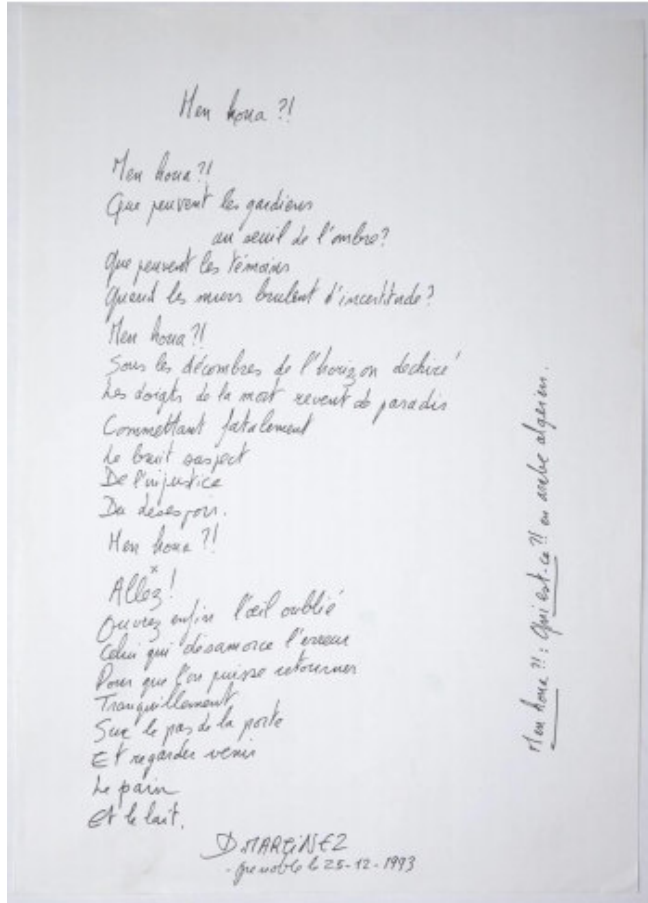 Men houa ?!
Men houa ?!
Que peuvent les gardiens
au seuil de l'ombre?
Que peuvent les témoins
Quand les murs brulent d'incertitude?
Men houa ?!
Sous les décombres de l'horizon dechiré
Les doigts de la mort revent de paradis
Commettant fatalement
Le bruit suspect
De l'injustice
Du desespoir.
Men houa ?!
Allez !
Ouvrez enfin l'œil oublié
Celui qui désamorce l'erreur
Pour que l'on puisse retourner
Tranquillement
Sur le pas de la porte
Et regarder venir
Le pain
Et le lait.
D MARTINEZ
- Grenoble le 25-12-1993
Men houa ?! : Qui est-ce ?! en arabe algerien.